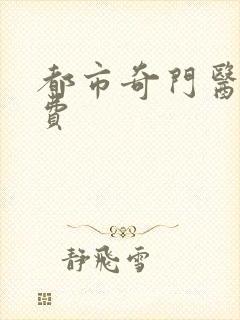 都市奇門醫
費
靜飛雪